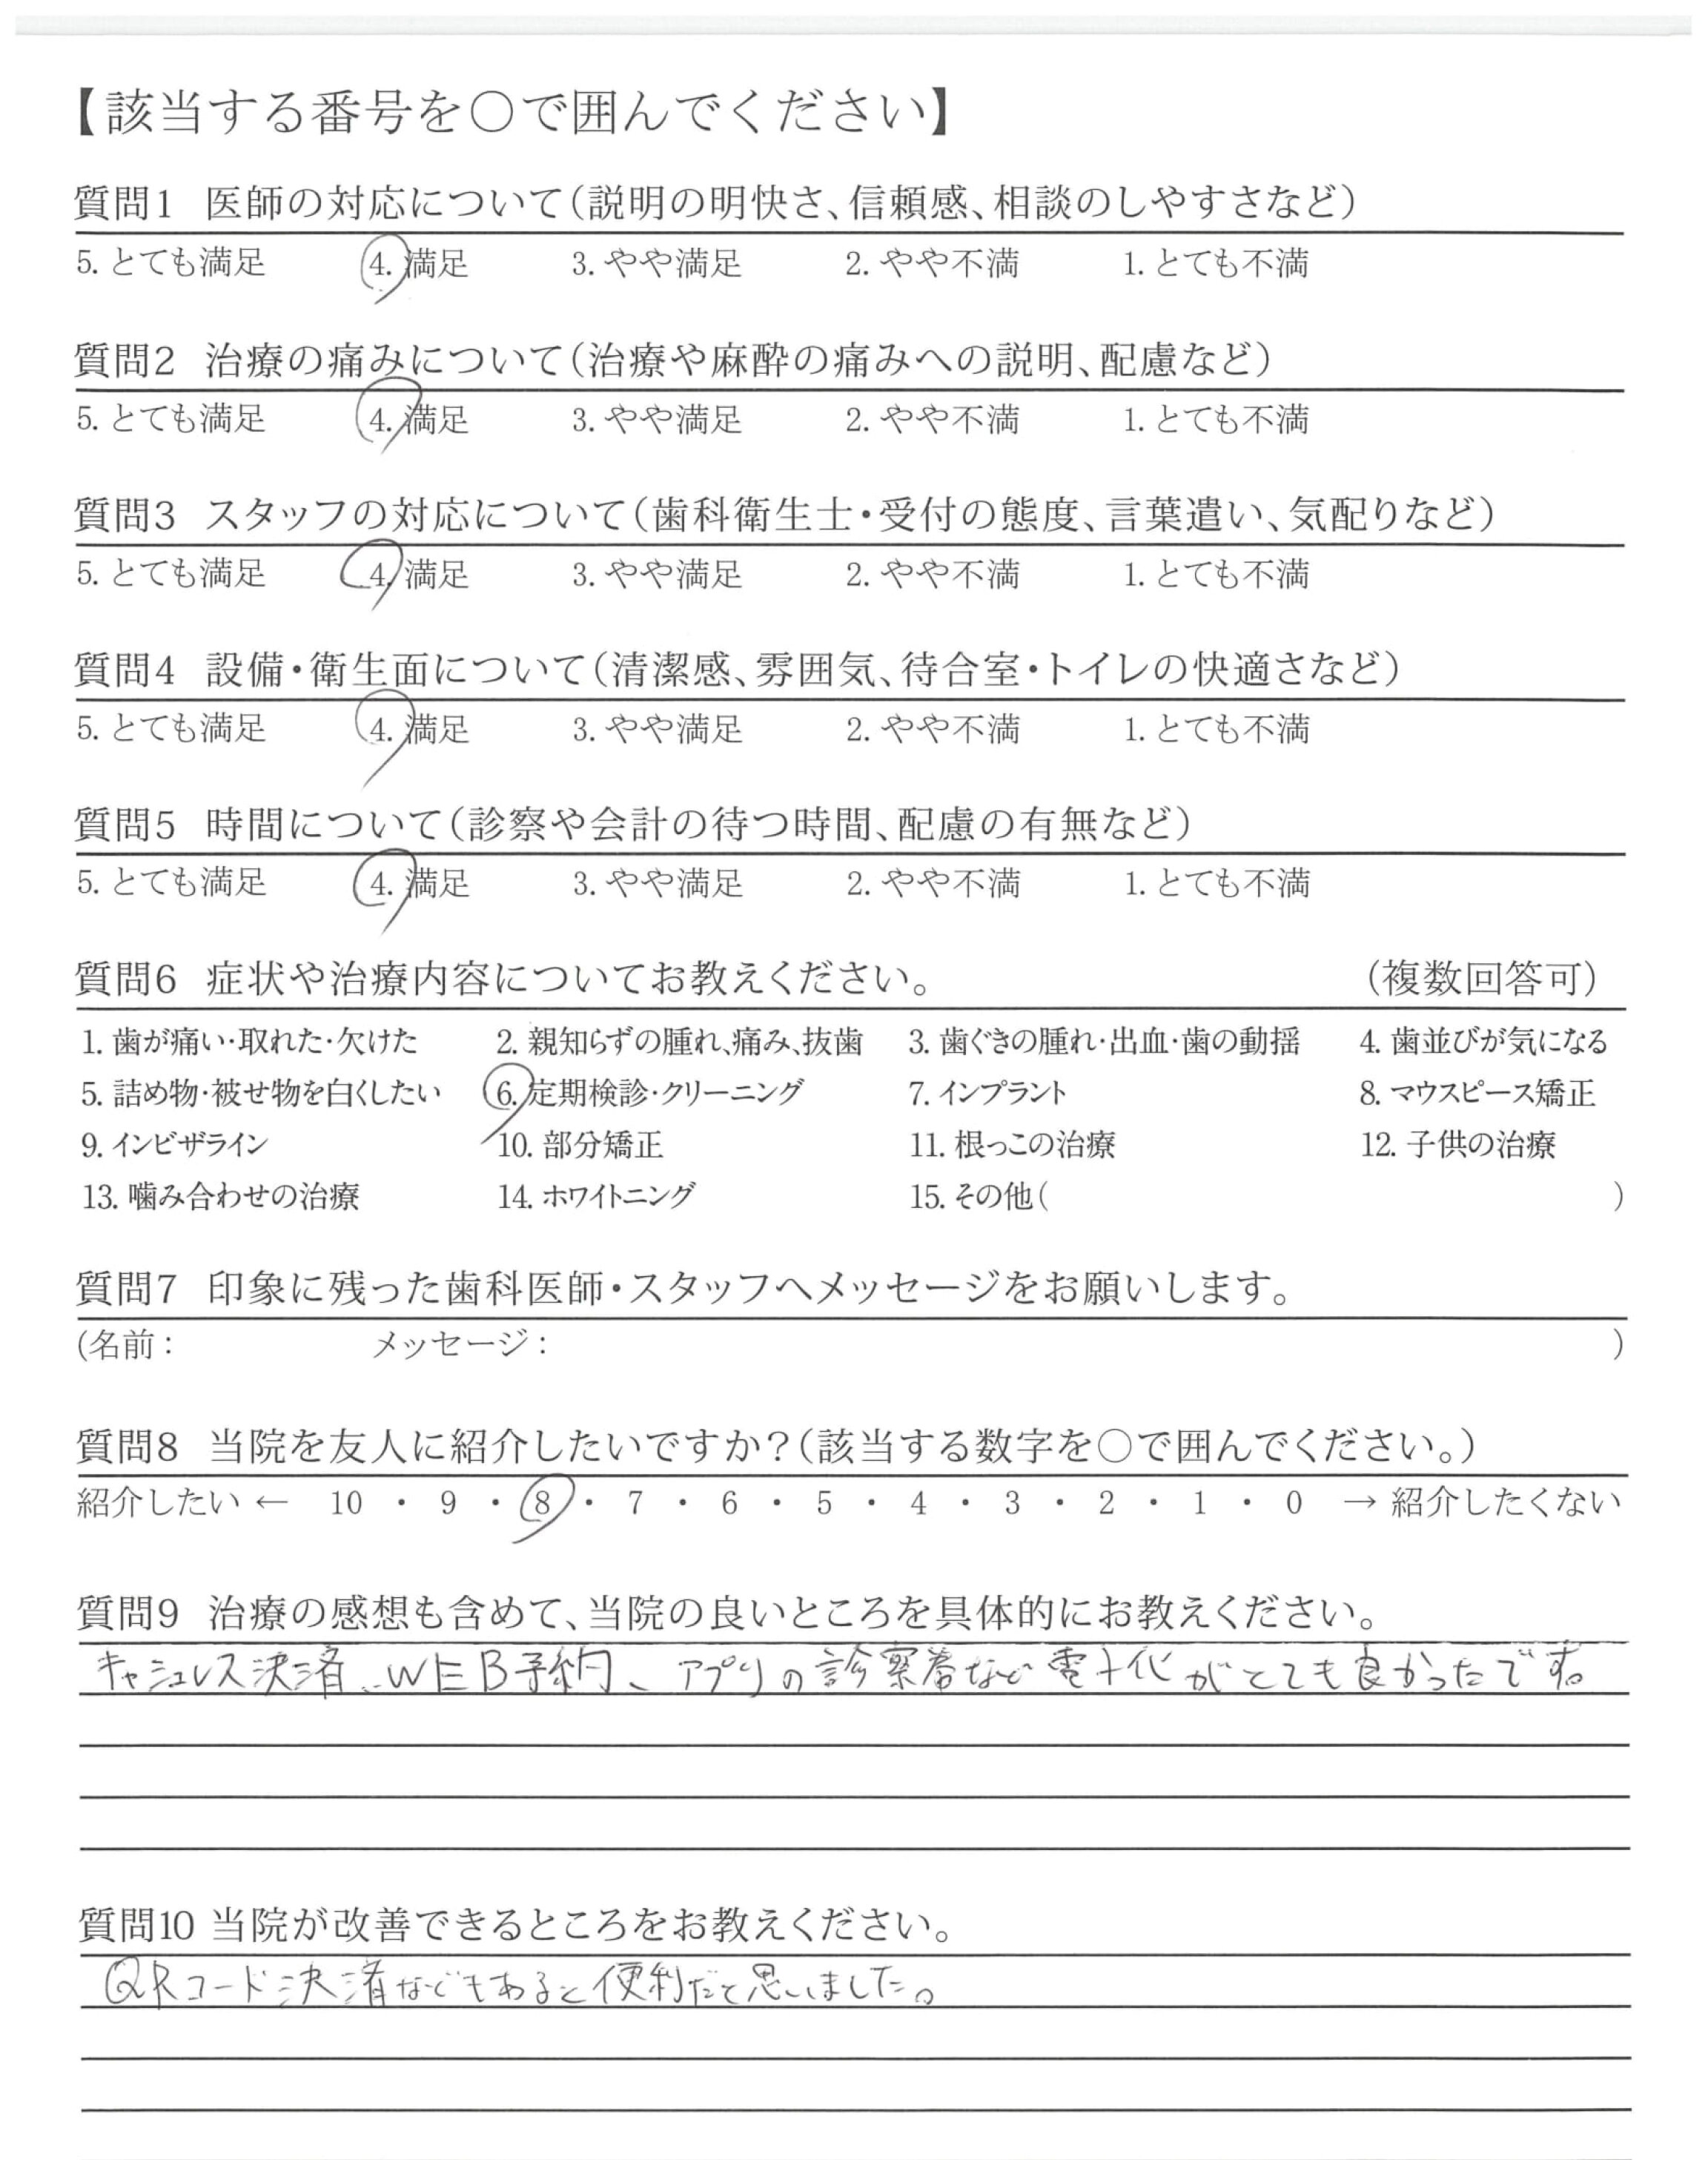 【該当する番号を〇で囲んでください】
質問1 医師の対応について(説明の明快さ、信頼感、相談のしやすさなど)
5. とても満足 4. 満足 3. やや満足 2. やや不満 1. とても不満
質問2 治療の痛みについて(治療や麻酔の痛みへの説明、配慮など)
5. とても満足 4. 満足 3. やや満足 2. やや不満 1. とても不満
質問3 スタッフの対応について(歯科衛生士・受付の態度、言葉遣い、気配りなど)
5. とても満足 4. 満足 3. やや満足 2. やや不満 1. とても不満
質問4 設備・衛生面について(清潔感、雰囲気、待合室・トイレの快適さなど)
5. とても満足 4. 満足 3. やや満足 2. やや不満 1. とても不満
質問5 時間について(診察や会計の待つ時間、配慮の有無など)
5. とても満足 4. 満足 3. やや満足 2. やや不満 1. とても不満
質問6 症状や治療内容についてお教えください。 (複数回答可)
1. 歯が痛い・取れた・欠けた 2. 親知らずの腫れ、痛み、抜歯 3. 歯ぐきの腫れ・出血・歯の動揺 4. 歯並びが気になる
5. 詰め物・被せ物を白くしたい 6. 定期検診・クリーニング 7. インプラント 8. マウスピース矯正
9. インビザライン 10. 部分矯正 11. 根っこの治療 12. 子供の治療
13. 噛み合わせの治療 14. ホワイトニング 15. その他( )
質問7 印象に残った歯科医師・スタッフへメッセージをお願いします。
(名前： メッセージ： )
質問8 当院を友人に紹介したいですか？(該当する数字を〇で囲んでください。)
紹介したい ← 10 ・ 9 ・ 8 ・ 7 ・ 6 ・ 5 ・ 4 ・ 3 ・ 2 ・ 1 ・ 0 → 紹介したくない
質問9 治療の感想も含めて、当院の良いところを具体的にお教えください。
キャシュレス決済、WEB予約、アプリの診察券など電子化がとても良かったです。
質問10 当院が改善できるところをお教えください。
QRコード決済などもあると便利だと思いました。